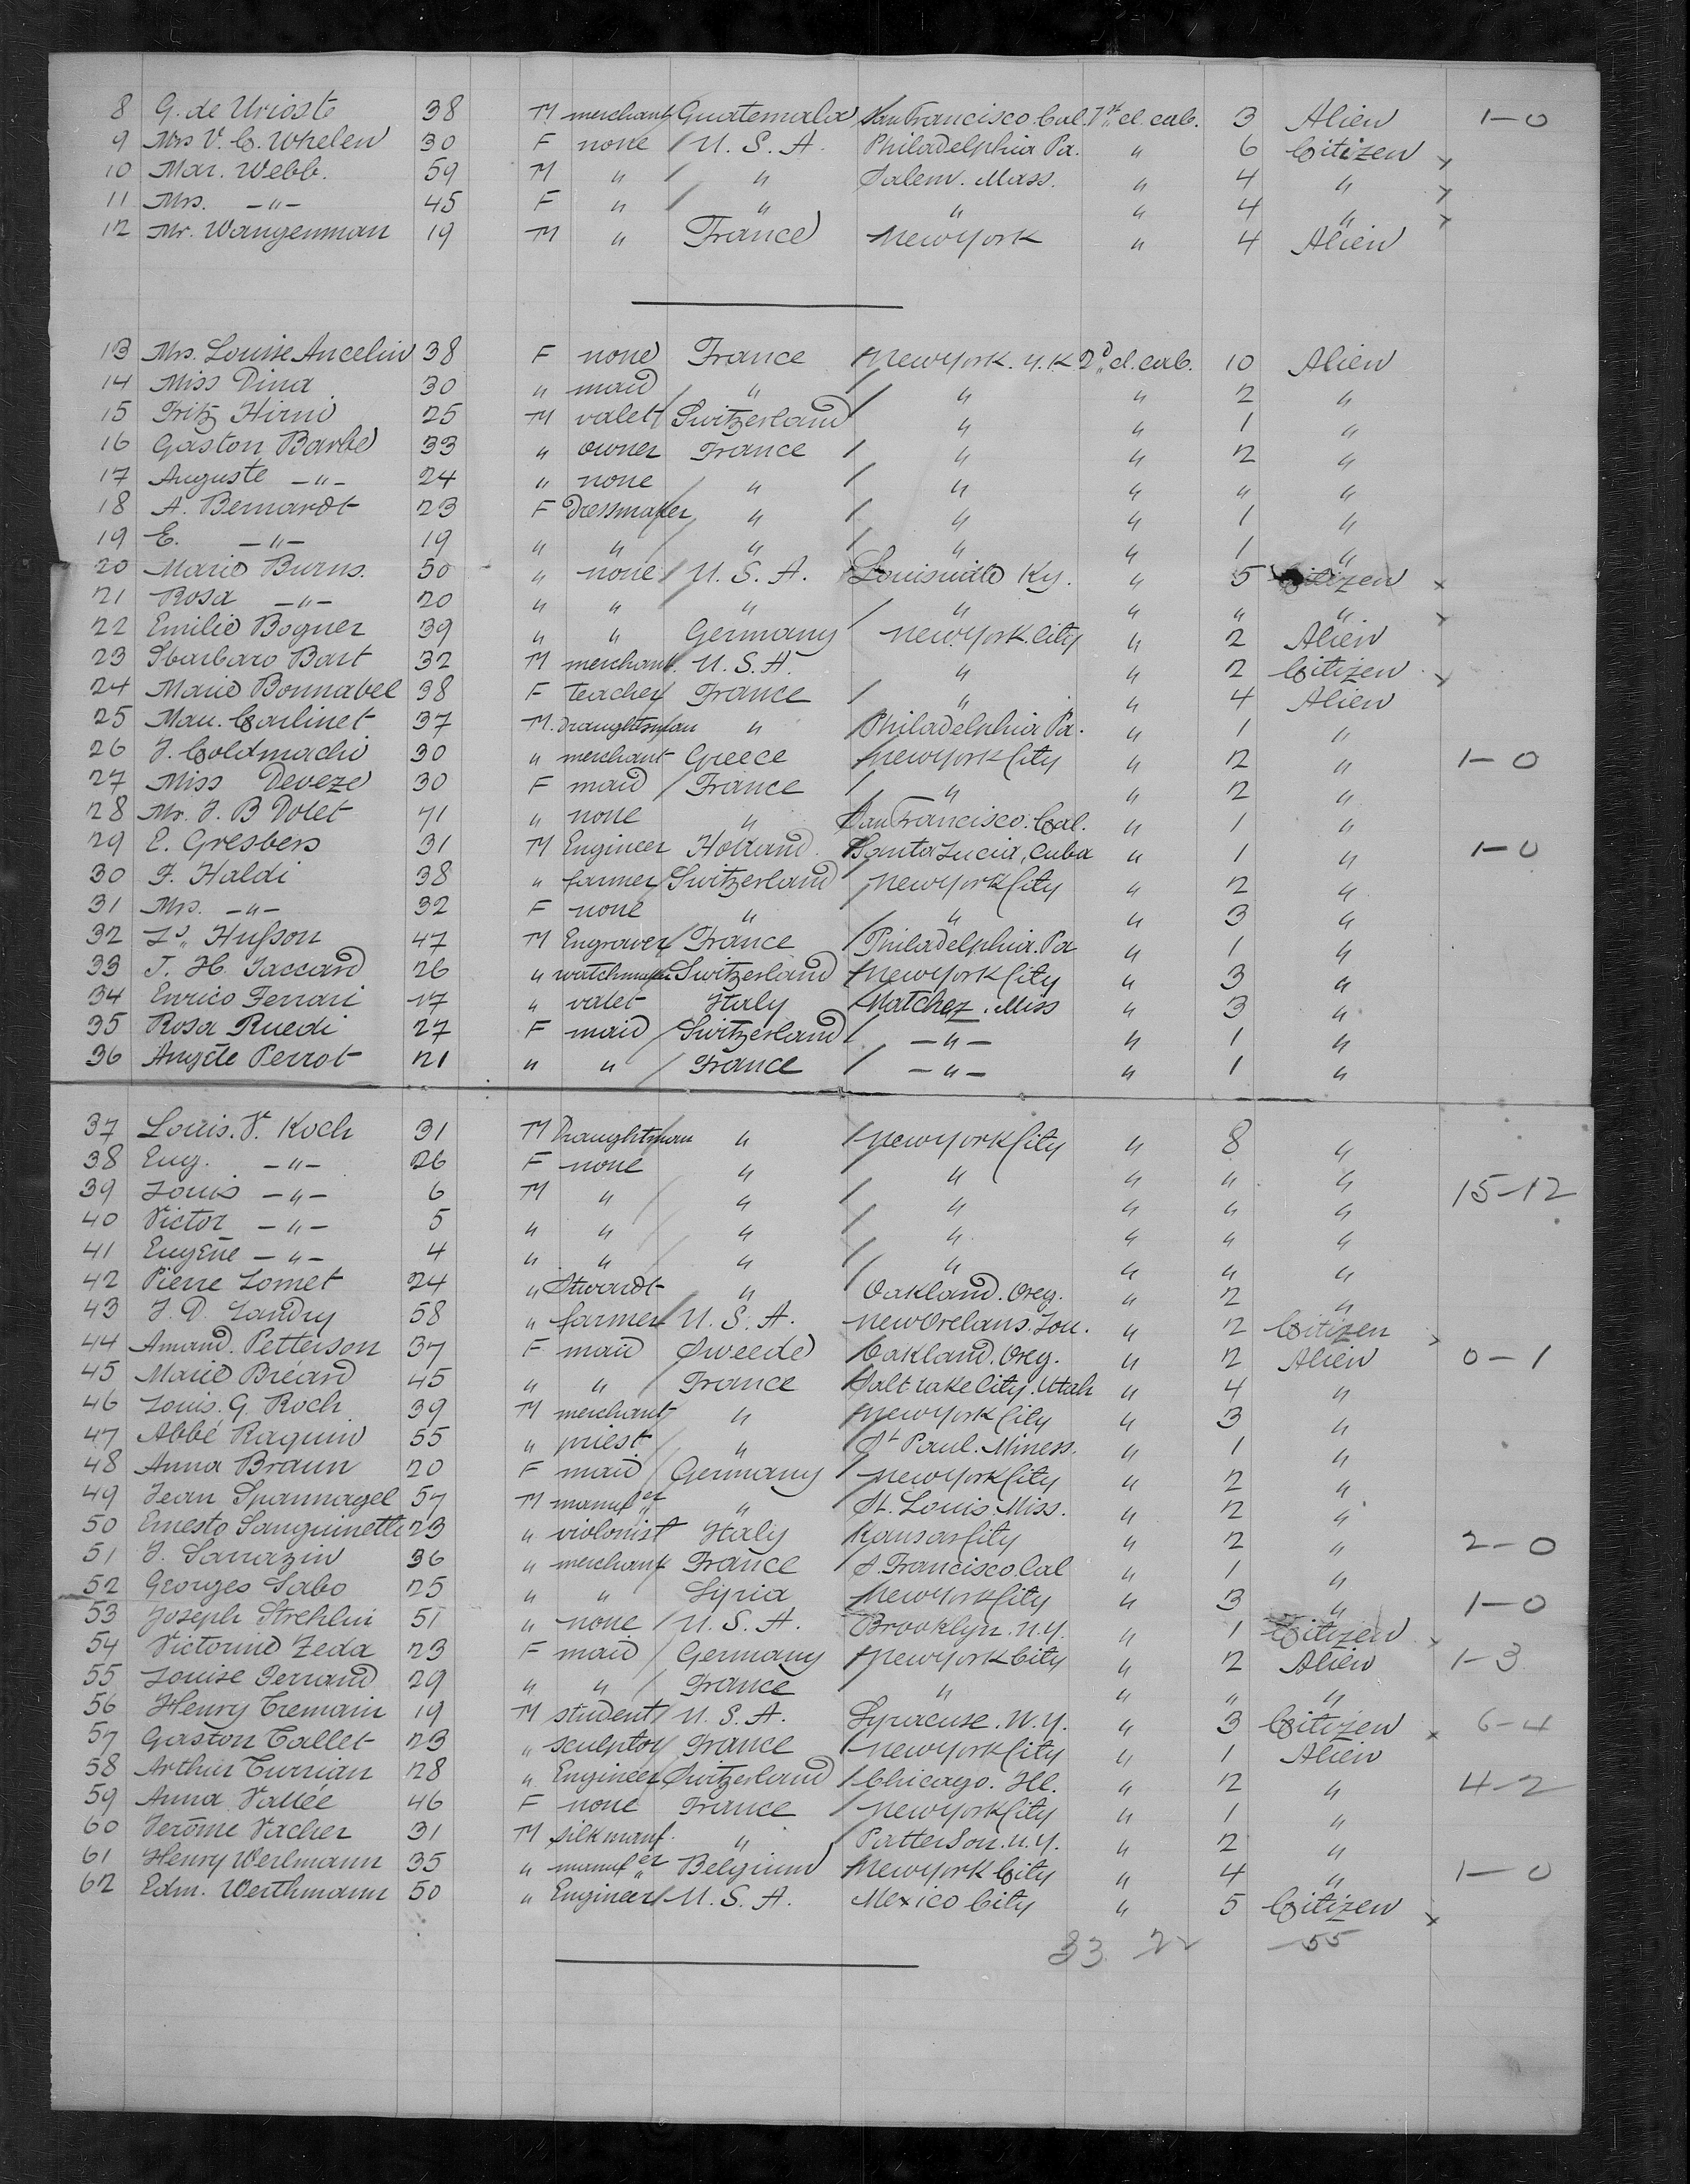 8 G. de Urioste 38 M merchant Guatemala San Francisco Cal. 1st cl. cab. 3 Alien 1-0
9 Mrs V. C. Whelen 30 F none U. S. A. Philadelphia Pa. " 6 Citizen
10 Mar. Webb. 59 M " " Salem. Mass. " 4 "
11 Mrs. -"- 45 F " " " " 4 "
12 Mr. Wangenman 19 M " France New York " 4 Alien
13 Mrs. Louise Ancelin 38 F none France New York. Y.K 2d cl. cab. 10 Alien
14 Miss Dina 30 " maid " " " 2 "
15 Fritz Hirni 25 M valet Switzerland " " 1 "
16 Gaston Barbe 33 " owner France " " 2 "
17 Auguste -"- 24 " none " " " " "
18 A. Bernardt 23 F Dressmaker " " " 1 "
19 E. -"- 19 " " " " " 1 "
20 Marie Burns. 50 " none U. S. A. Louisville Ky. " 5 Citizen x
21 Rosa -"- 20 " " " " " " "
22 Emilie Bogner 39 " " Germany New York. City " 2 Alien
23 Sbarbaro Bart 32 M merchant. U. S. A. " " 2 Citizen
24 Marie Bonnabel 38 F teacher France " " 4 Alien
25 Mau. Carlinet 37 M. Draughtsman " Philadelphia Pa. " 1 "
26 J. Coldmachi 30 " merchant Greece New York City " 2 " 1-0
27 Miss Deveze 30 F maid France " " 2 "
28 Mr. J. B Dolet 41 " none " San Francisco. Cal. " 1 "
29 E. Gresbers 31 M Engineer Holland. Santa Lucia, Cuba " 1 " 1-0
30 F. Haldi 38 " farmer Switzerland New York City " 2 "
31 Mrs. -"- 32 F none " " " 3 "
32 Ls. Husson 47 M Engraver France Philadelphia. Pa " 1 "
33 J. H. Jaccard 26 " watchmaker Switzerland New York City " 3 "
34 Enrico Ferrari 17 " valet Italy Natchez. Miss " 3 "
35 Rosa Ruedi 27 F maid Switzerland -"- " 1 "
36 Angèle Perrot 21 " " France -"- " 1 "
37 Louis. V. Koch 31 M Draughtman " New York City " 8 "
38 Eug. -"- 26 F none " " " " "
39 Louis -"- 6 M " " " " " " 15-12
40 Victor -"- 5 " " " " " " "
41 Eugène -"- 4 " " " " " " "
42 Pierre Lomet 24 " Stwardt " Oakland. Oreg. " 2 "
43 J. D. Landry 58 " farmer U. S. A. New Orelans. Lou. " 2 Citizen
44 Amand. Petterson 37 F maid Sweede Oakland. Oreg. " 2 Alien 0-1
45 Marie Bréard 45 " " France Salt Lake City. Utah " 4 "
46 Louis. G. Roch 39 M merchant " New York City " 3 "
47 Abbé Raguin 55 " priest. " St Paul. Miness. " 1 "
48 Anna Braun 20 F maid Germany New York City " 2 "
49 Jean Spannagel 57 M manufer " St. Louis Miss. " 2 "
50 Ernesto Sanguinetti 23 " violonist Italy Kansas City " 2 " 2-0
51 J. Sarrazin 36 " merchant France S. Francisco. Cal " 1 "
52 Georges Sabo 25 " " Syria New York City " 3 " 1-0
53 Joseph Strehlin 51 " none U. S. A. Brooklyn. N.Y. " 1 Citizen
54 Victorine Zeda 23 F maid Germany New York City " 2 Alien 1-3
55 Louise Ferrand 29 " " France " " " "
56 Henry Tremain 19 M student U. S. A. Syracuse. N.Y. " 3 Citizen x 6-4
57 Gaston Tallet 23 " sculptor France New York City " 1 Alien
58 Arthur Turrian 28 " Engineer Switzerland Chicago. Ill. " 2 " 4-2
59 Anna Vallee 46 F none France New York City " 1 "
60 Jerôme Vacher 31 M silk manf. " Patterson. N.Y. " 2 "
61 Henry Werlmann 35 " manufer Belgium New York City " 4 " 1-0
62 Edm. Werthmann 50 " Engineer U. S. A. Mexico City " 5 Citizen x
33 22 55